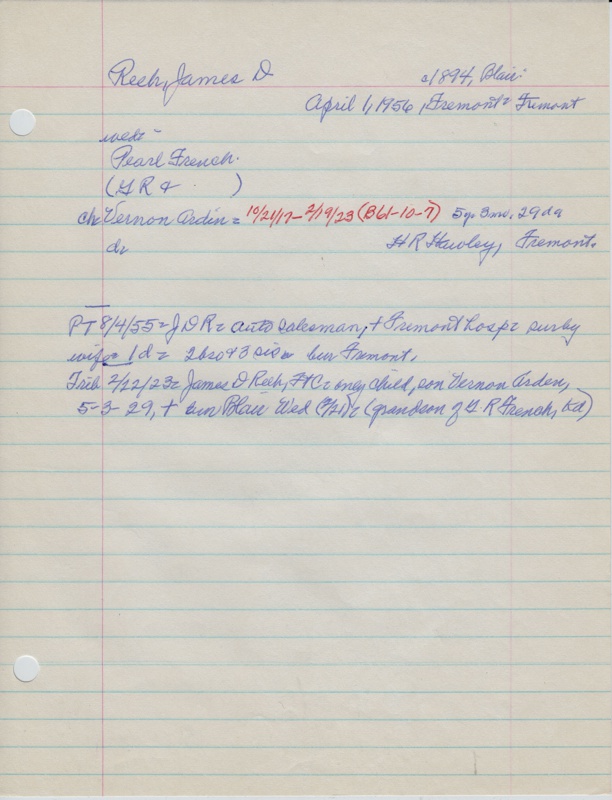 Reeh, James D c1894, Blair.
April 1, 1956, Fremont = Fremont
wed =
Pearl French.
(G R & )
ch Vernon Ardin = 10/21/17 - 2/19/23 (B61-10-7) 5 y. 3 mo. 29 da
dr H R Hawley, Fremont.
PT 8/4/55 = J D R = auto salesman, + Fremont hosp = surv by
wife = 1 d = 2 bro & 3 sis = bur Fremont.
Trib 2/22/23 = James D Reeh, only child, son Vernon Arden,
5-3-29, + bur Blair Wed (2/21) (grandson of G. R French, Kd)